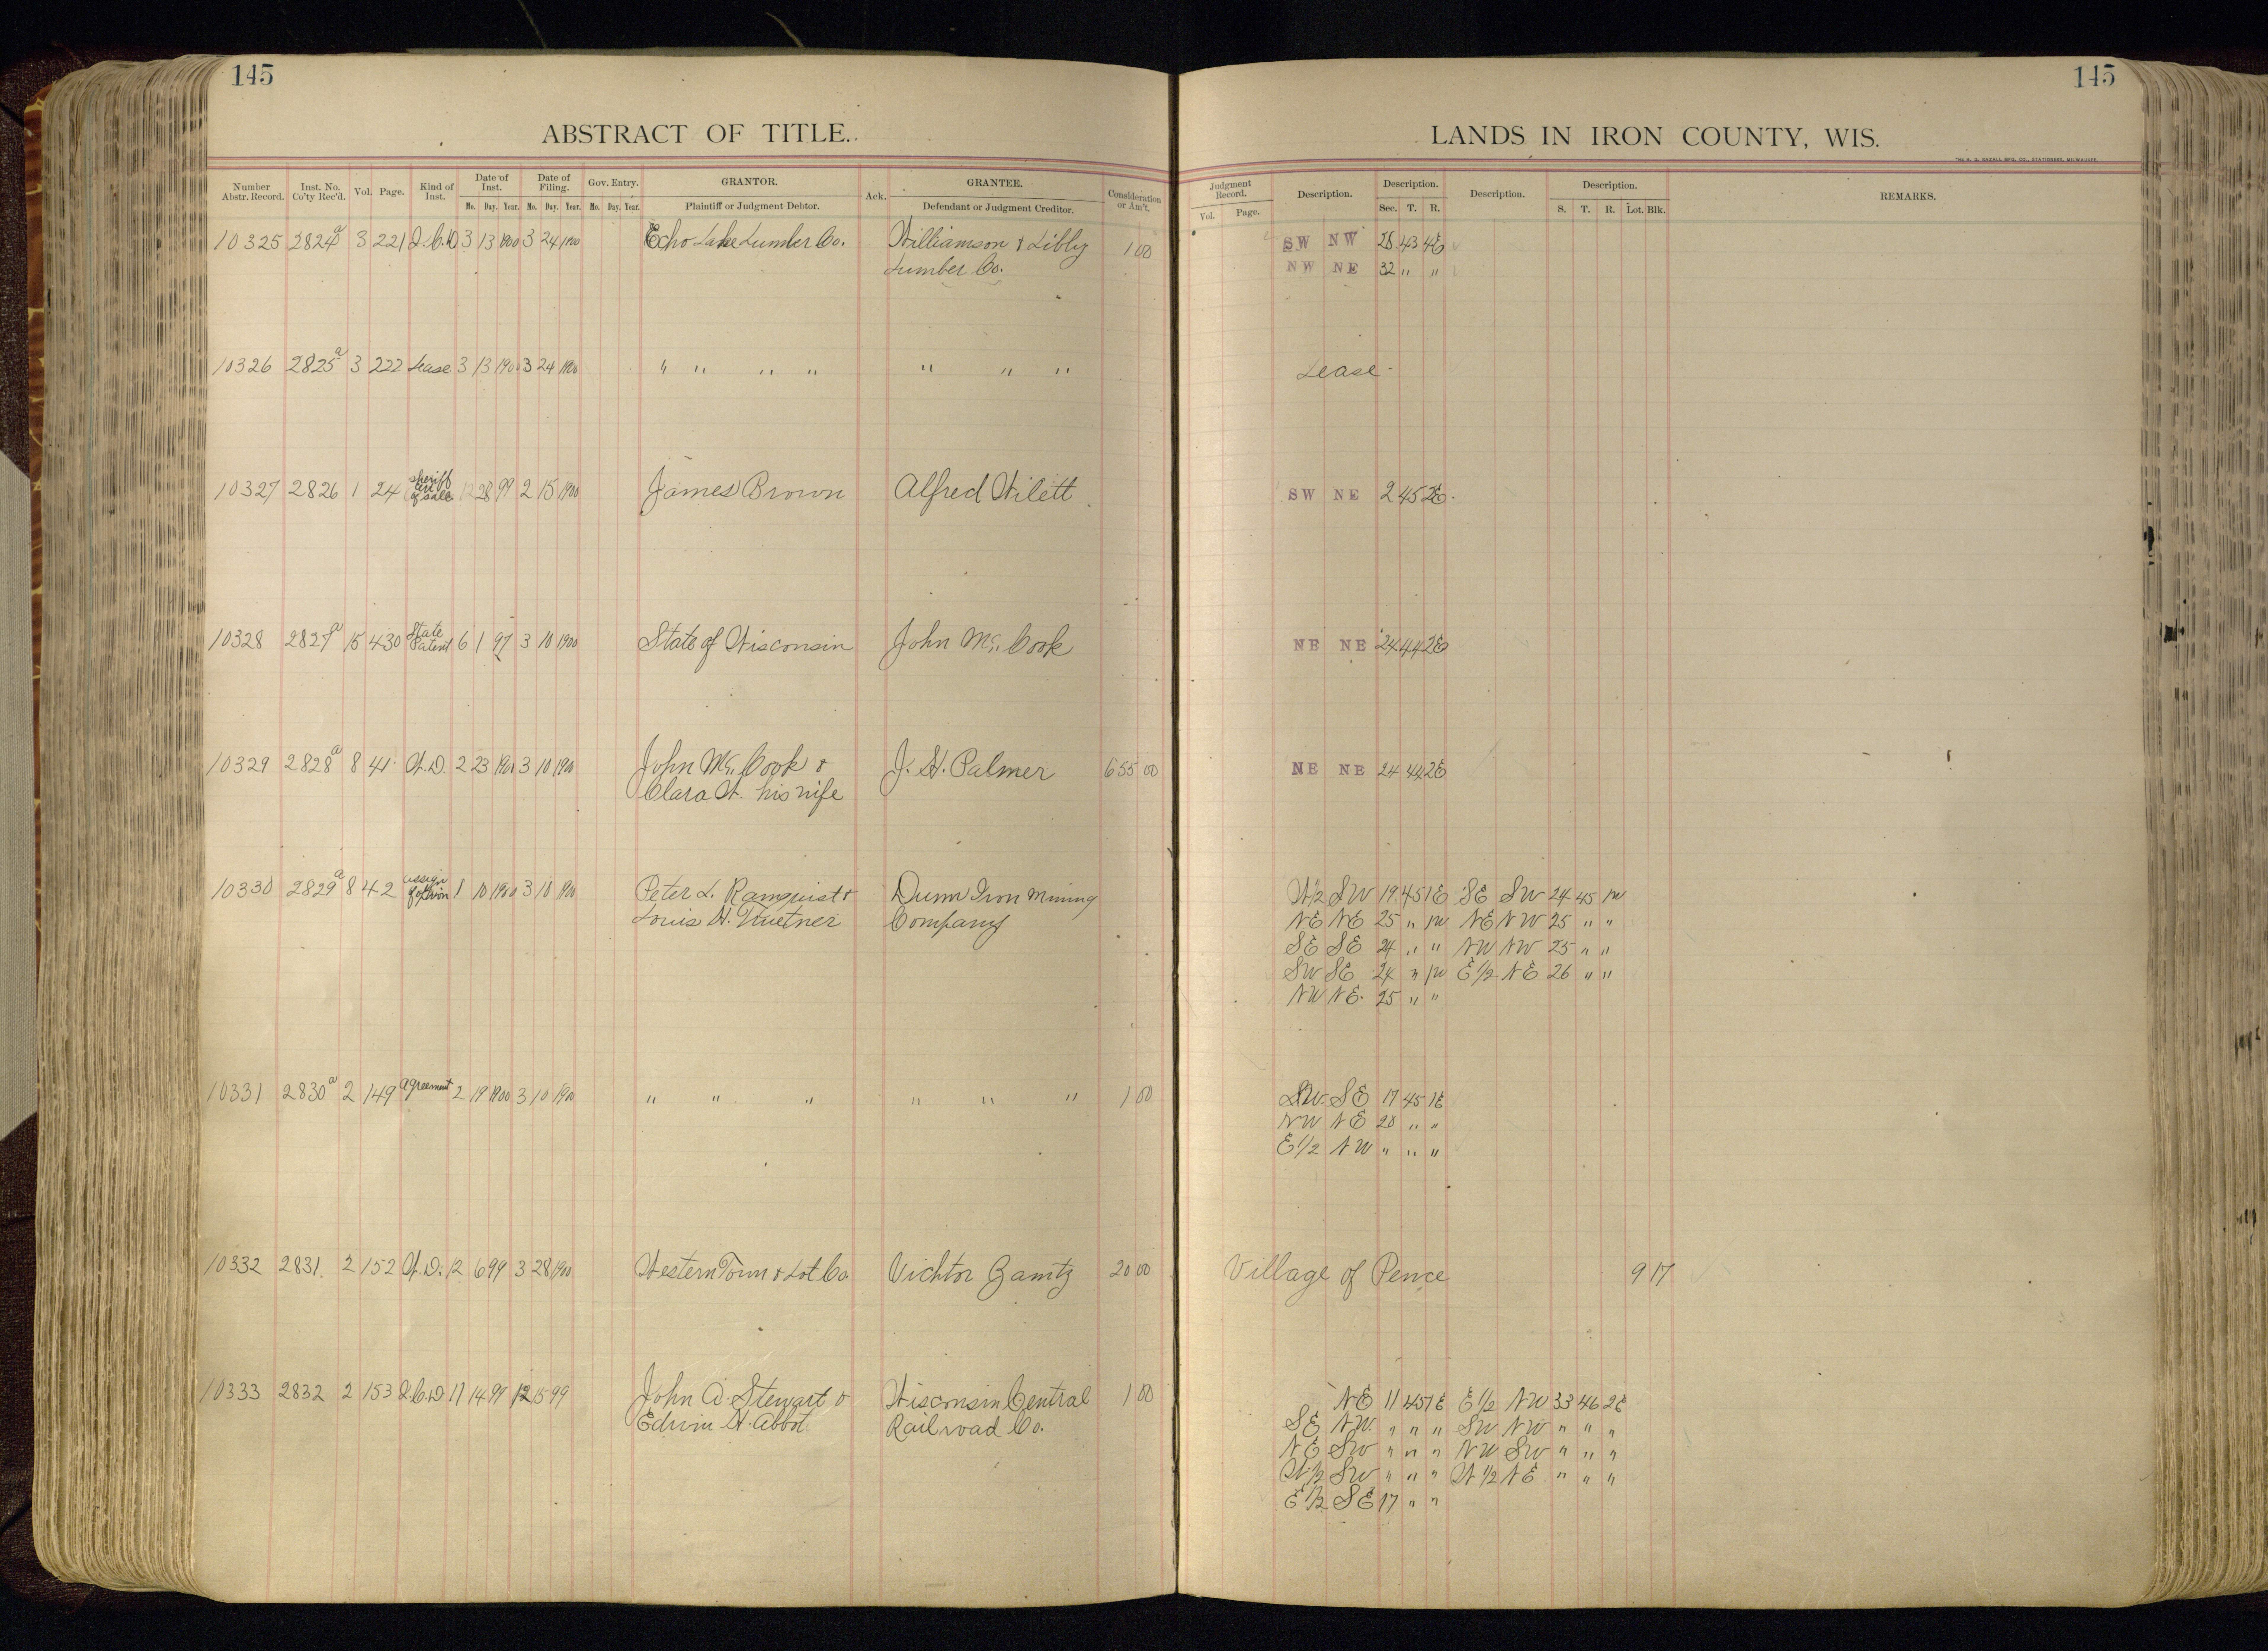 145
145
ABSTRACT OF TITLE.
LANDS IN IRON COUNTY, WIS.
Number Abstr. Record. Inst. No. Co'ty Rec'd. Vol. Page. Kind of Inst. Date of Inst. Mo. Day. Year. Date of Filing. Mo. Day. Year. Gov. Entry. Mo. Day. Year. GRANTOR. Plaintiff or Judgment Debtor. Ack. GRANTEE. Defendant or Judgment Creditor. Consideration or Am't.
Judgment Record. Vol. Page. Description. Description. Sec. T. R. Description. Description. S. T. R. Lot. Blk. REMARKS.
10325 2824a 3 221 Q.C.D 3 13 1900 3 24 1900 Echo Lake Lumber Co. Williamson & Libby 1 00 SW NW 28 43 4E
Lumber Co. NW NE 32 " "
10326 2825a 3 222 Lease 3 13 1900 3 24 1900 " " " " " " " Lease
10327 2826 1 24 Sheriff Cert of Sale 12 28 99 2 15 1900 James Brown Alfred Wilett SW NE 2 45 2E
10328 2827a 15 430 State Patent 6 1 97 3 10 1900 State of Wisconsin John Mc. Cook NE NE 24 44 2E
10329 2828a 8 41 W.D. 2 23 1900 3 10 1900 John Mc. Cook & J. W. Palmer 655 00 NE NE 24 44 2E
Clara W. his wife
10330 2829a 8 42 Assign of option 1 10 1900 3 10 1900 Peter L. Ramquist & Dunn Iron Mining W1/2 SW 19 45 1E SE SW 24 45 1W
Louis W. Company NE NE 25 " 1W NE NW 25 " "
SE SE 24 " " NW NW 25 " "
SW SE 24 " 1W E1/2 NE 26 " "
NW NE 25 " "
10331 2830a 2 149 Agreement 2 19 1900 3 10 1900 " " " " " " 1 00 SW SE 17 45 1E
NW NE 20 " "
E1/2 NW " " "
10332 2831 2 152 W.D. 12 6 99 3 28 1900 Western Town & Lot Co Vichtor Zamtz 20 00 Village of Pence 9 17
10333 2832 2 153 Q.C.D. 11 14 99 12 15 99 John A. Stewart & Wisconsin Central 1 00 NE 11 45 1E E1/2 NW 33 46 2E
Edwin H. Abbot Railroad Co. SE NW " " " SW NW " " "
NE SW " " " NW SW " " "
W1/2 SW " " " W1/2 NE " " "
E1/2 SE 17 " "